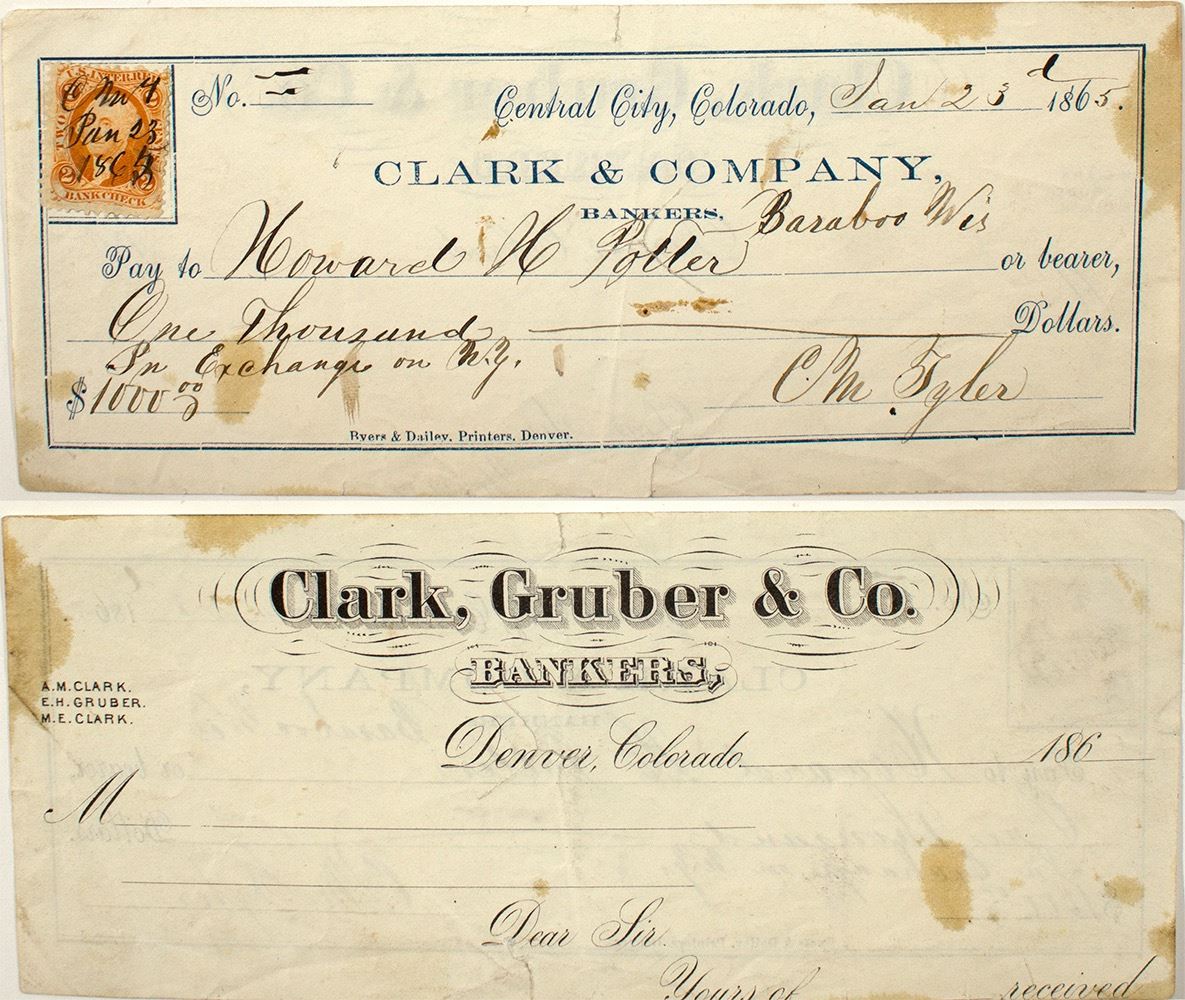 U.S. INTER. REV.
TWO CENTS
2 2
BANK CHECK
C M T
Jan 23
1865
No. =
Central City, Colorado, Jan 23d 1865.
CLARK & COMPANY,
BANKERS,
Baraboo Wis
Pay to Howard H Potter or bearer,
One Thousand Dollars.
In Exchange on N.Y.
$1000 00
C. M Tyler
Byers & Dailey, Printers, Denver.
Clark, Gruber & Co.
BANKERS,
A.M. CLARK.
E.H. GRUBER.
M.E. CLARK.
Denver, Colorado 186
M
Dear Sir
Yours of received